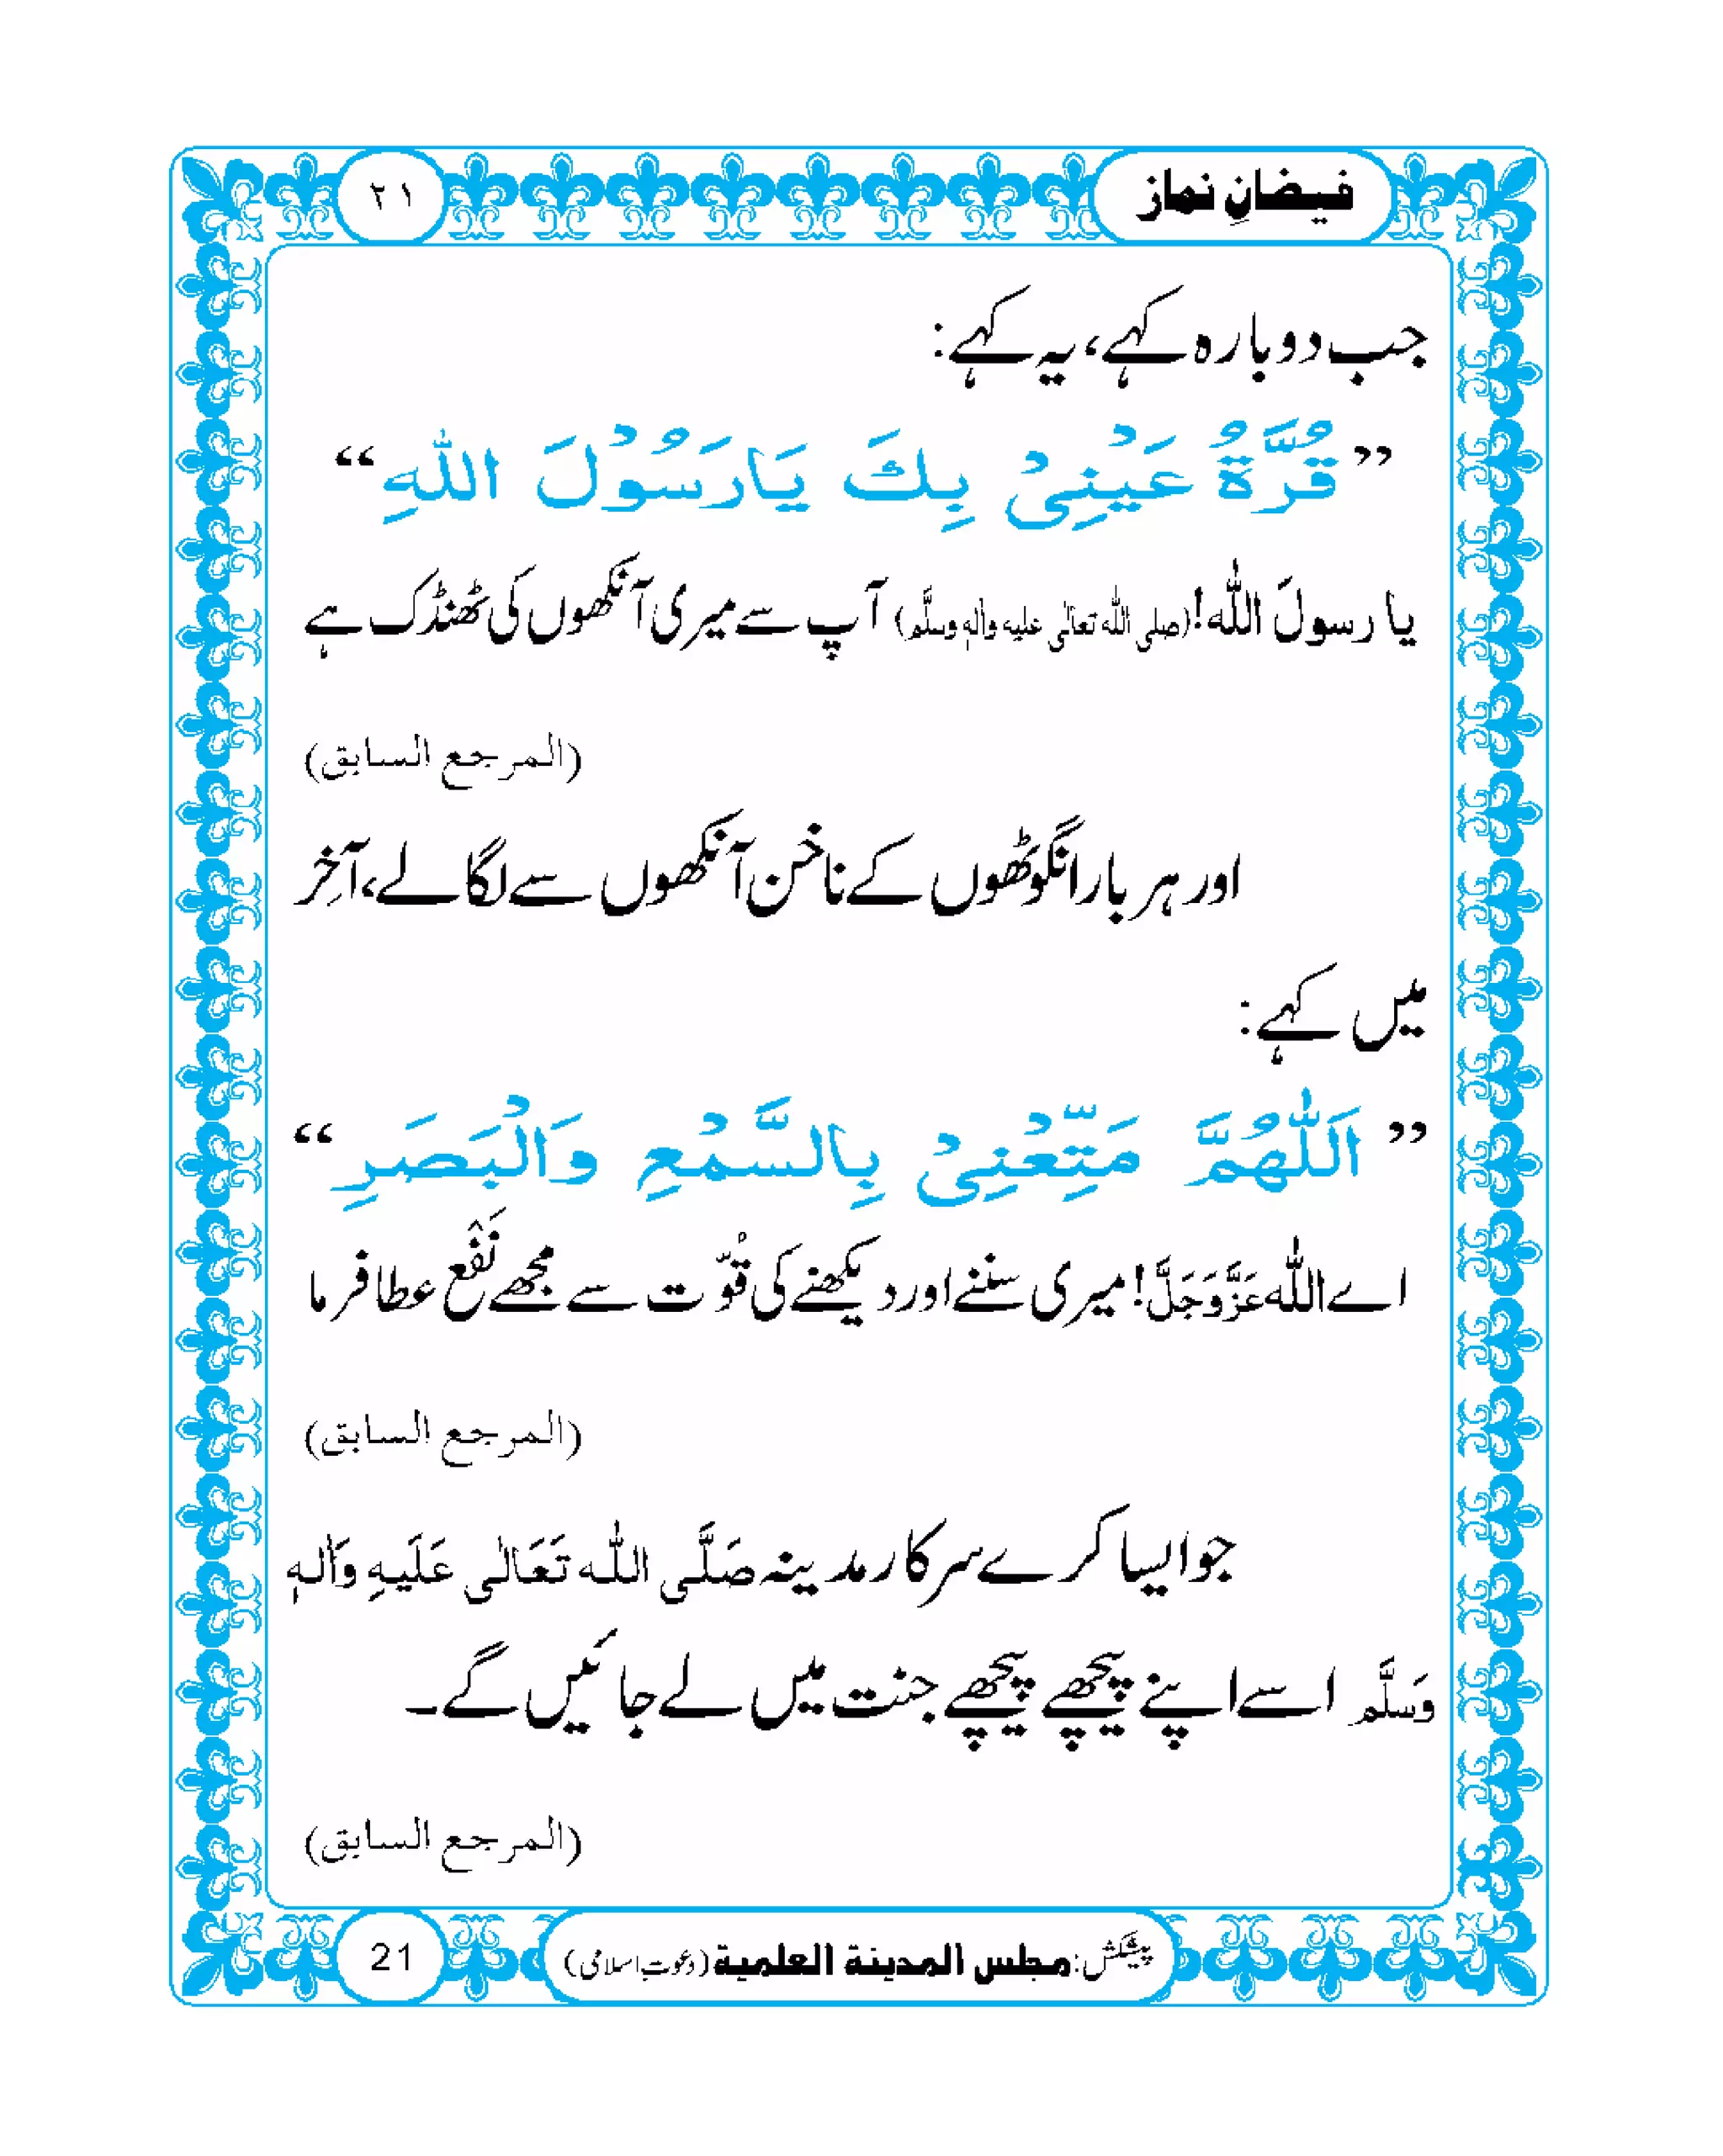 فیضانِ نماز
۲۱
جب دوبارہ کہے، یہ کہے:
”قُرَّۃُ عَیْنِیْ بِكَ یَارَسُوْلَ اللّٰہِ“
یا رسولَ اللّٰہ! (صلی اللّٰہ تعالٰی علیہ واٰلہٖ وسلَّم) آپ سے میری آنکھوں کی ٹھنڈک ہے
(المرجع السابق)
اور ہر بار انگوٹھوں کے ناخن آنکھوں سے لگالے، آخِر
میں کہے:
” اَللّٰھُمَّ مَتِّعْنِیْ بِالسَّمْعِ وَالْبَصَرِ “
اے اللّٰہ عَزَّوَجَلَّ! میری سننے اور دیکھنے کی قوّت سے مجھے نَفْع عطا فرما
(المرجع السابق)
جو ایسا کرے سرکار مدینہ صَلَّی اللّٰہ تَعَالٰی عَلَیہِ وَاٰلہٖ
وَسلَّم اسے اپنے پیچھے پیچھے جنت میں لے جائیں گے۔
(المرجع السابق)
پیشکش: مجلس المدینۃ العلمیۃ (دعوتِ اسلامی)
21